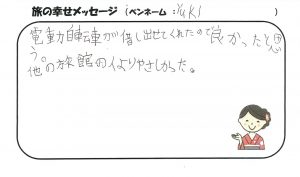 旅の幸せメッセージ (ペンネーム:YUKI)
電動自転車が借し出せてくれたので良かったと思
う。
他の旅館の人よりやさしかった。